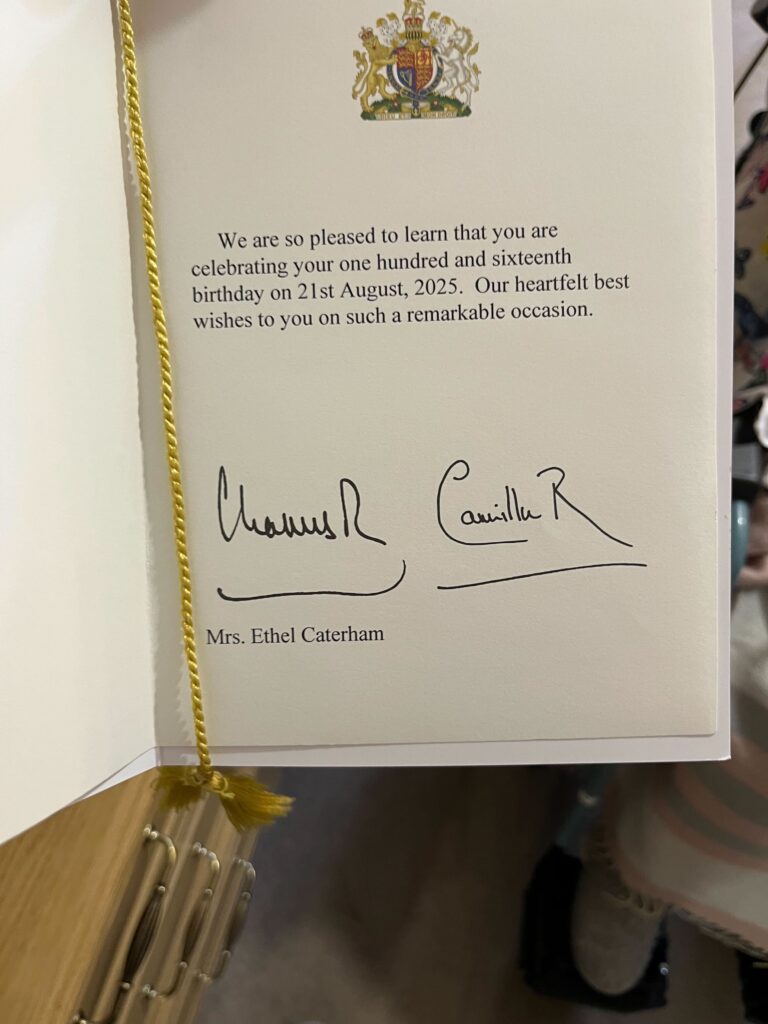 We are so pleased to learn that you are
celebrating your one hundred and sixteenth
birthday on 21st August, 2025. Our heartfelt best
wishes to you on such a remarkable occasion.
Charles R Camilla R
Mrs. Ethel Caterham